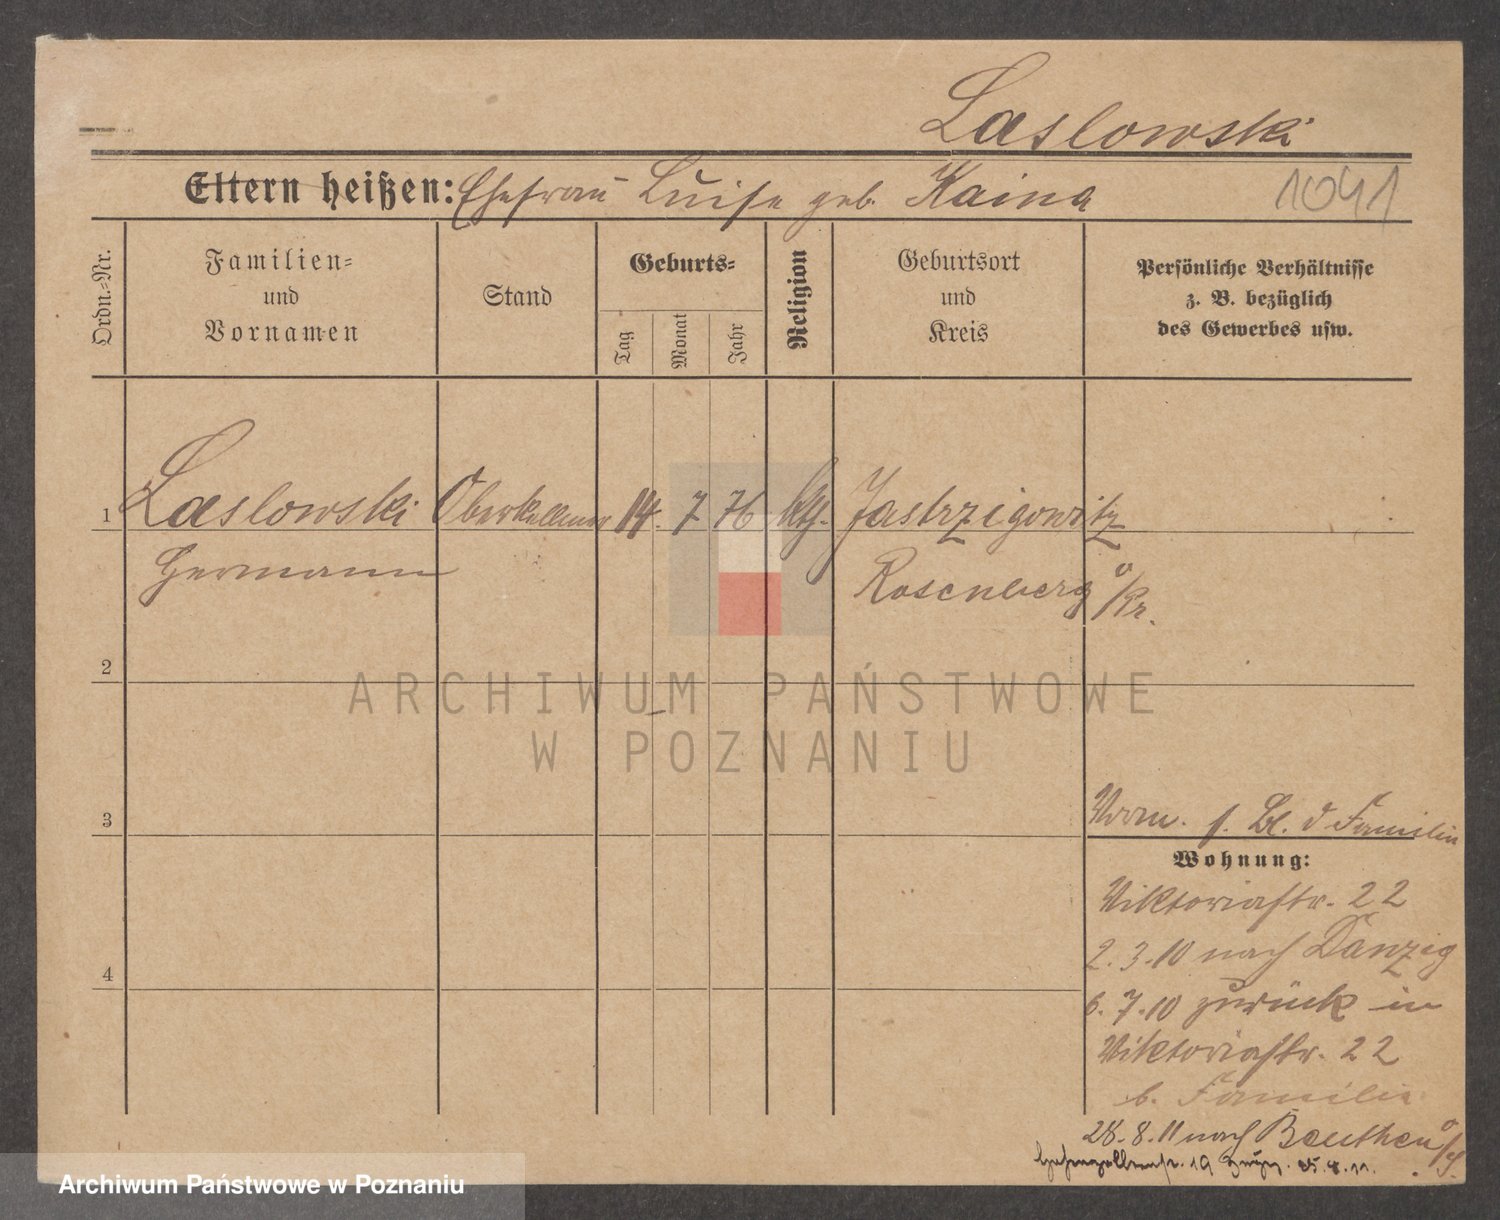 Laslowski
Eltern heißen: Ehefrau Luise geb. Kaina
1041
Ordn.-Nr.
Familien-
und
Vornamen
Stand
Geburts-
Tag
Monat
Jahr
Religion
Geburtsort
und
Kreis
Persönliche Verhältnisse
z. B. bezüglich
des Gewerbes usw.
1 Laslowski Oberkellner 14. 7 76 ktl. Jastrzigowitz
Hermann Rosenberg o/Kr.
2
ARCHIWUM PAŃSTWOWE
W POZNANIU
3
Vorm. s. Bl. d Familie
Wohnung:
Viktoriastr. 22
2.3.10 nach Danzig
4
6.7.10 zurück in
Viktoriastr. 22
b. Familie
28.8.11 nach Beuthen o/S.
Hohenzollernstr. 19 25.8.11.
Archiwum Państwowe w Poznaniu